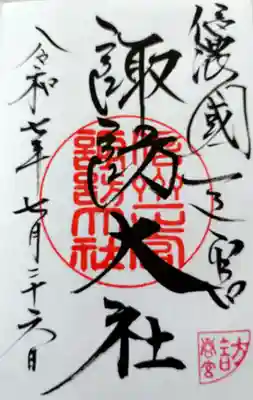 信濃國一之宮
諏訪大社
令和七年七月二十六日
諏訪大社